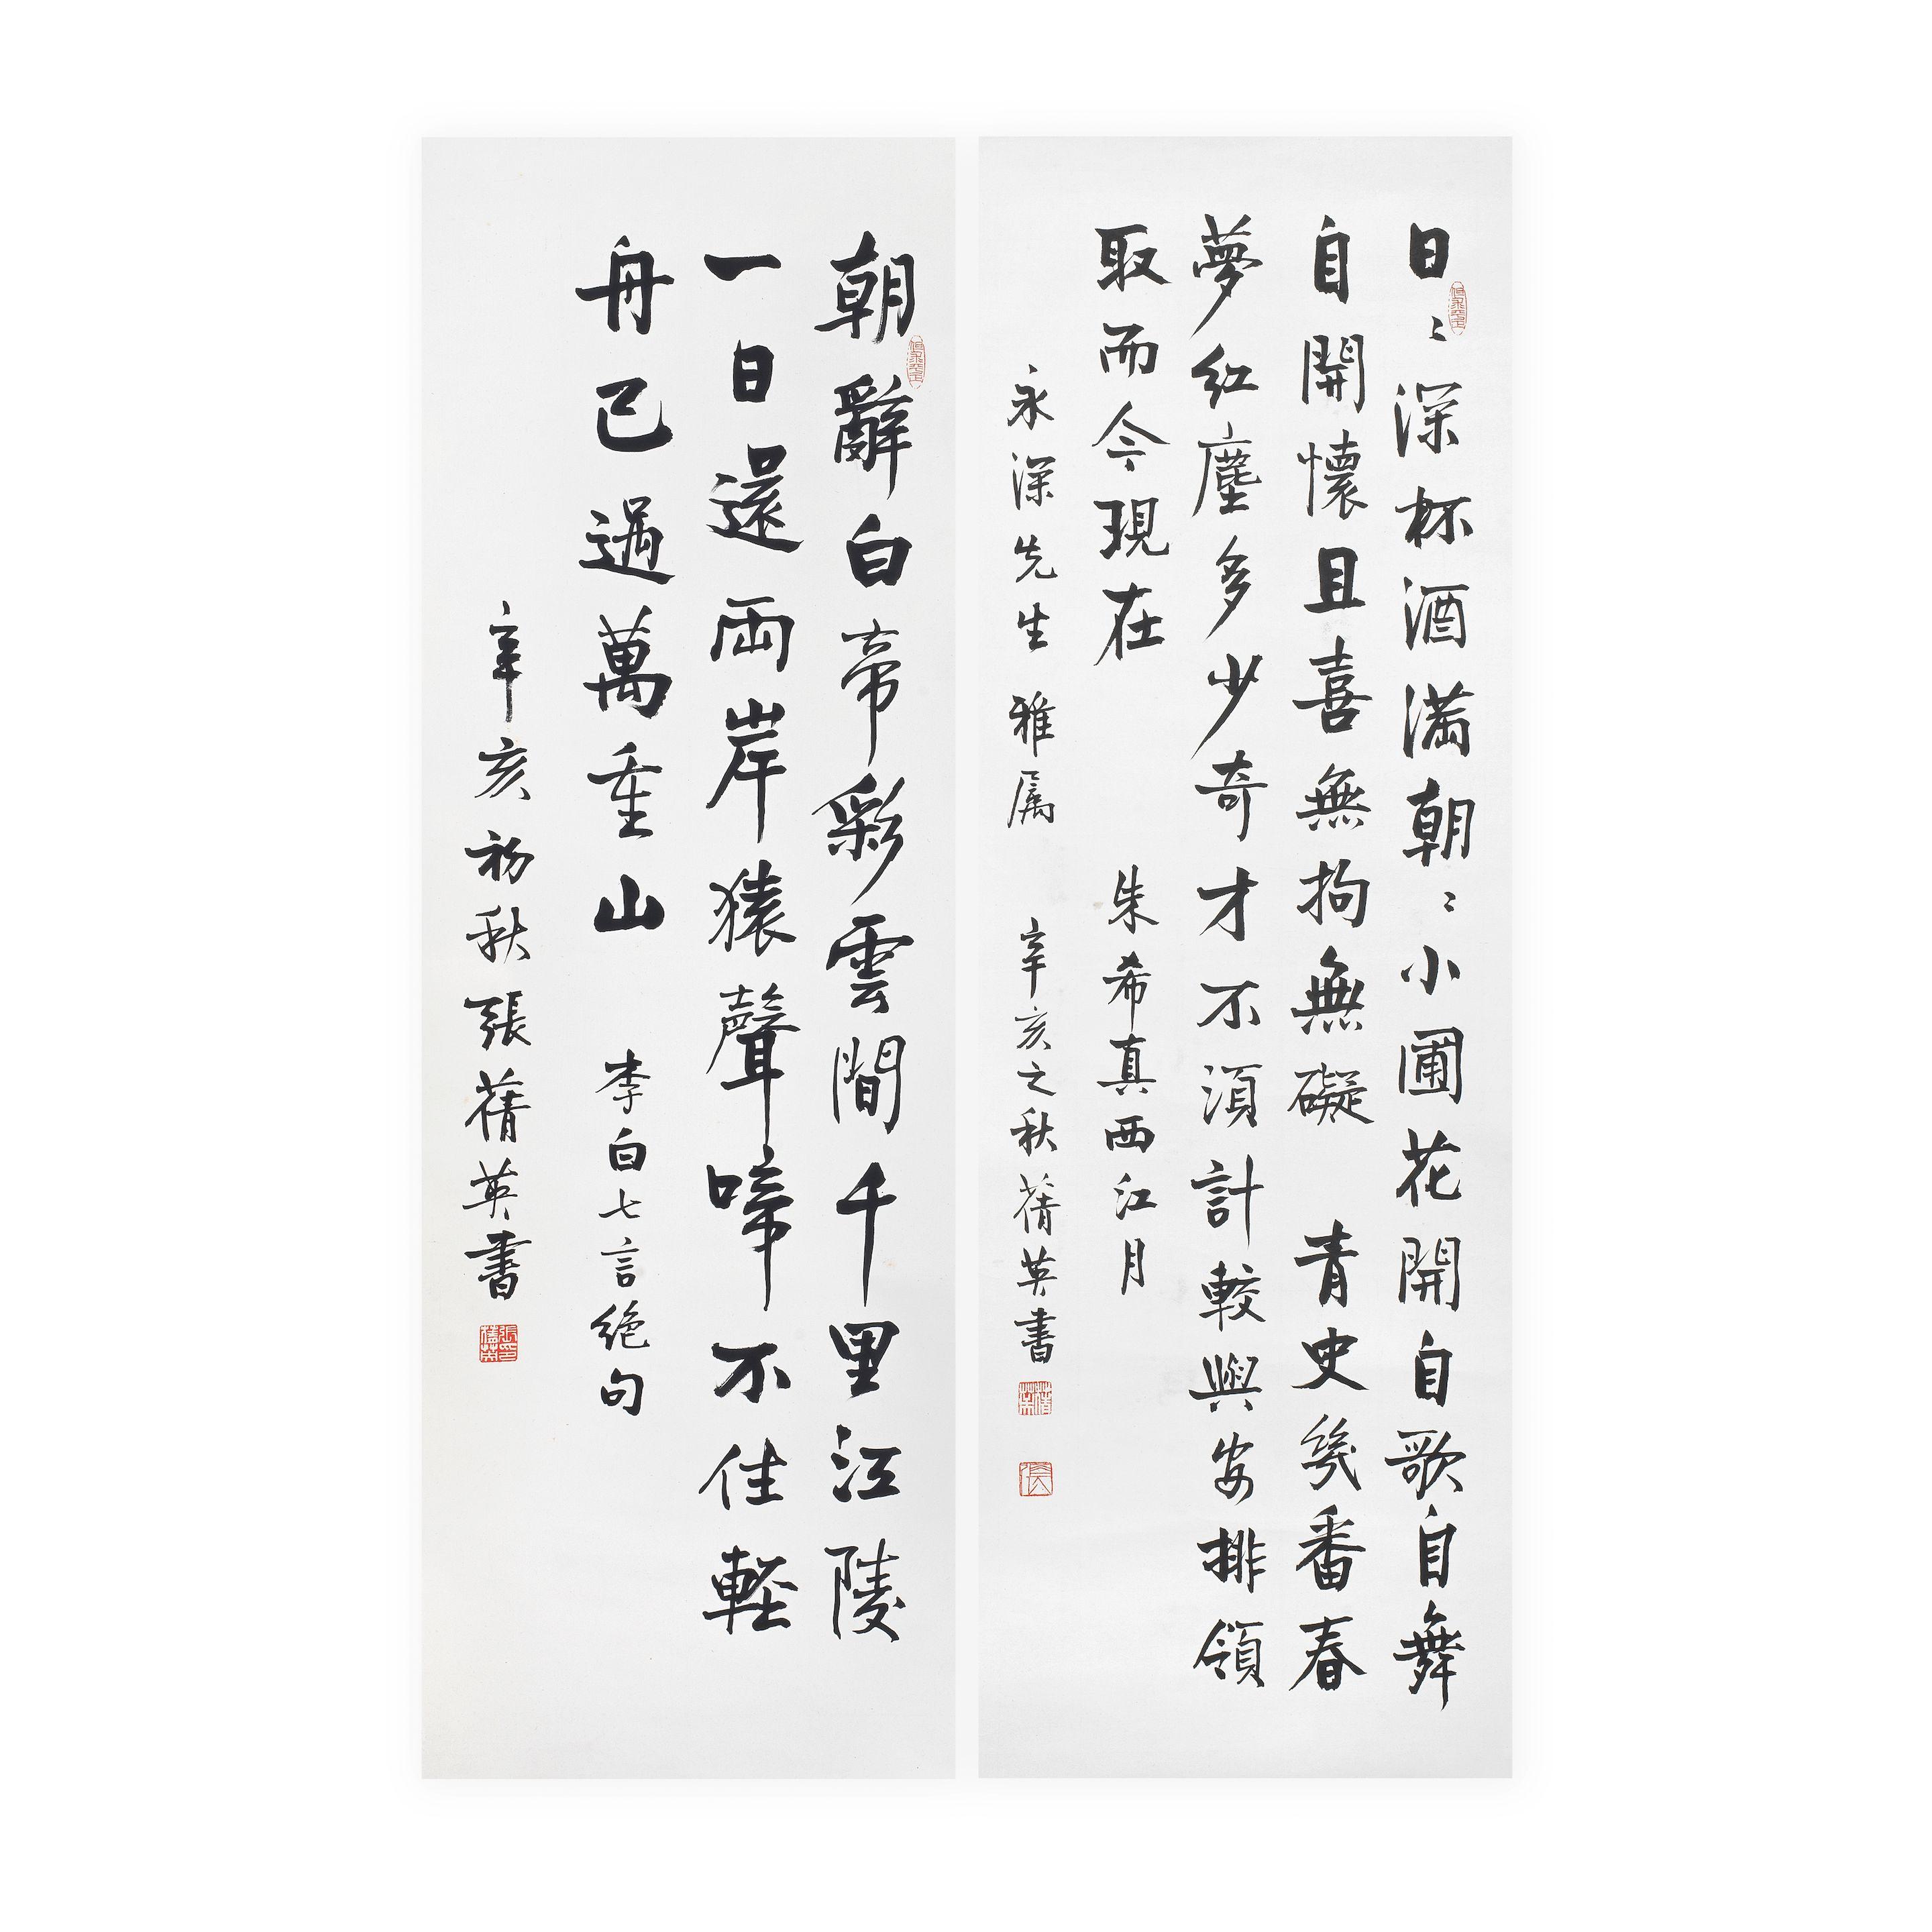 日〻深杯酒滿朝〻小圃花開自歌自舞
自開懷且喜無拘無礙 青史幾番春
夢紅塵多少奇才不須計較與安排領
取而今現在 朱希真西江月
永深先生 雅属 辛亥之秋蒨英書
朝辭白帝彩雲間千里江陵
一日還兩岸猿聲啼不住輕
舟已過萬重山 李白七言绝句
辛亥初秋張蒨英書